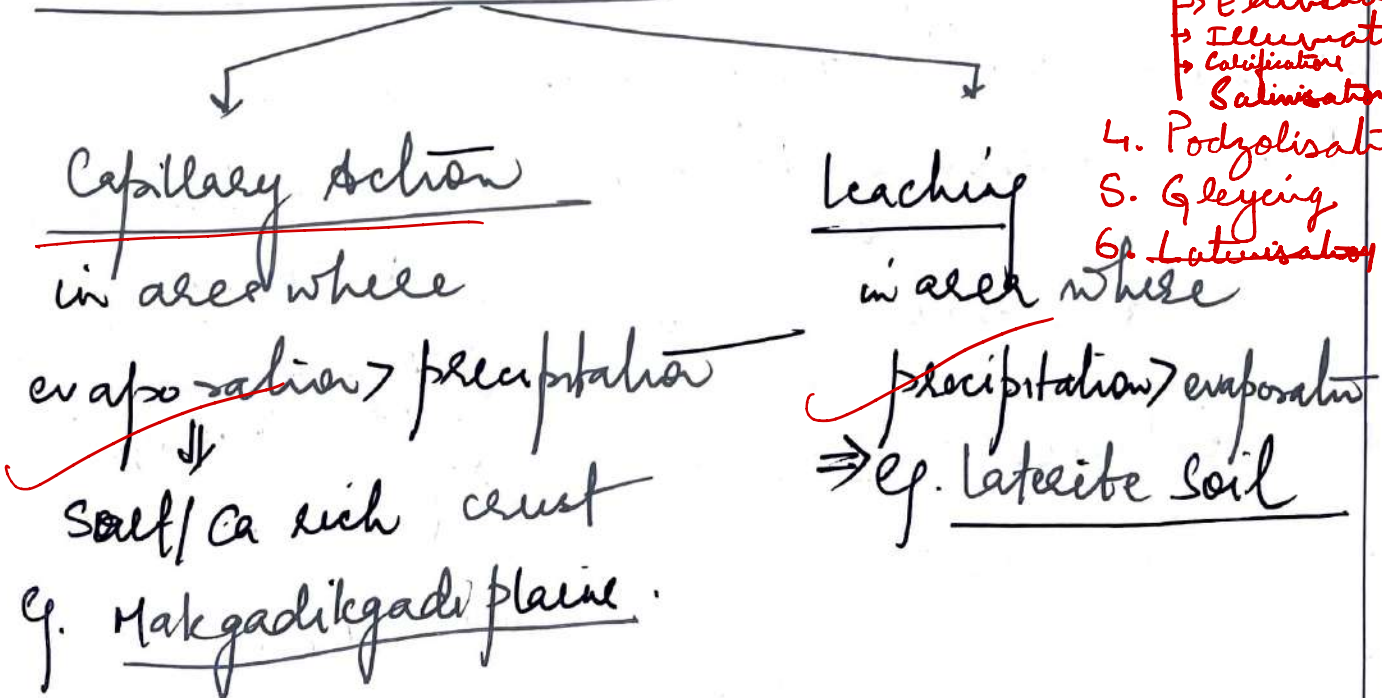 Illuviat
Calcification
Salinisation
4. Podzolisati
5. Gleying
6. Laterisation
Capillary Action
in area where
evaporation > precipitation
⇓
Salt/Ca rich crust
eg. Makgadikgadi plains.
Leaching
in area where
precipitation > evaporation
⇒ eg. Laterite Soil